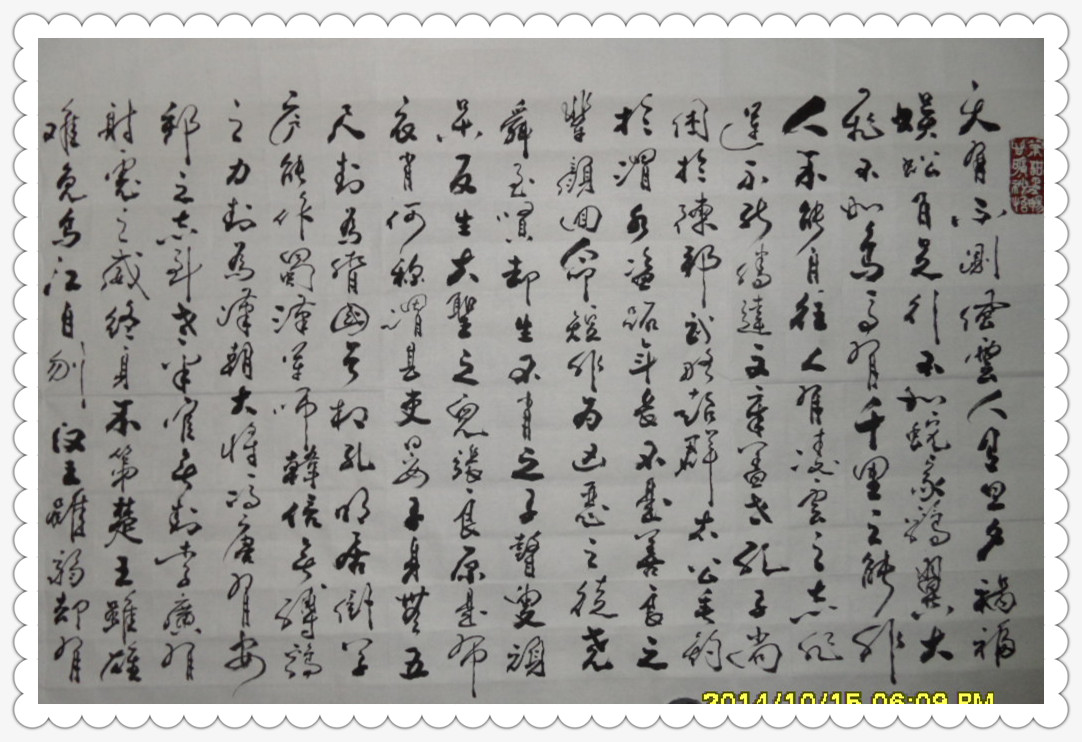 天有不測風雲人有旦夕禍福
蜈蚣百足行不如蛇家鷄翼大
飛不如鳥馬有千里之能非
人不能自往人有凌雲之志非
運不能騰達文章蓋世孔子尚
困於陳邦武略超群太公垂釣
於渭水盜跖年長不是善良之
輩顏回命短非为凶惡之徒堯
舜至賢却生不肖之子瞽叟頑
呆反生大聖之兒張良原是布
衣肖何称謂县吏晏子身無五
尺封為齊國宰相孔明居卧草
廬能作蜀漢軍師韓信無縛鷄
之力封為漢朝大將馮唐有安
邦之志到老半官無封李廣有
射虎之威終身不第楚王雖雄
難免烏江自刎汉王雖弱却有
2014/10/15 06:09 PM